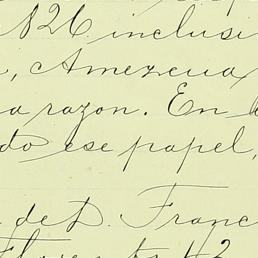 826 inclusi
, Amezcua
a razon. En l
do ese papel,
de D. Franc